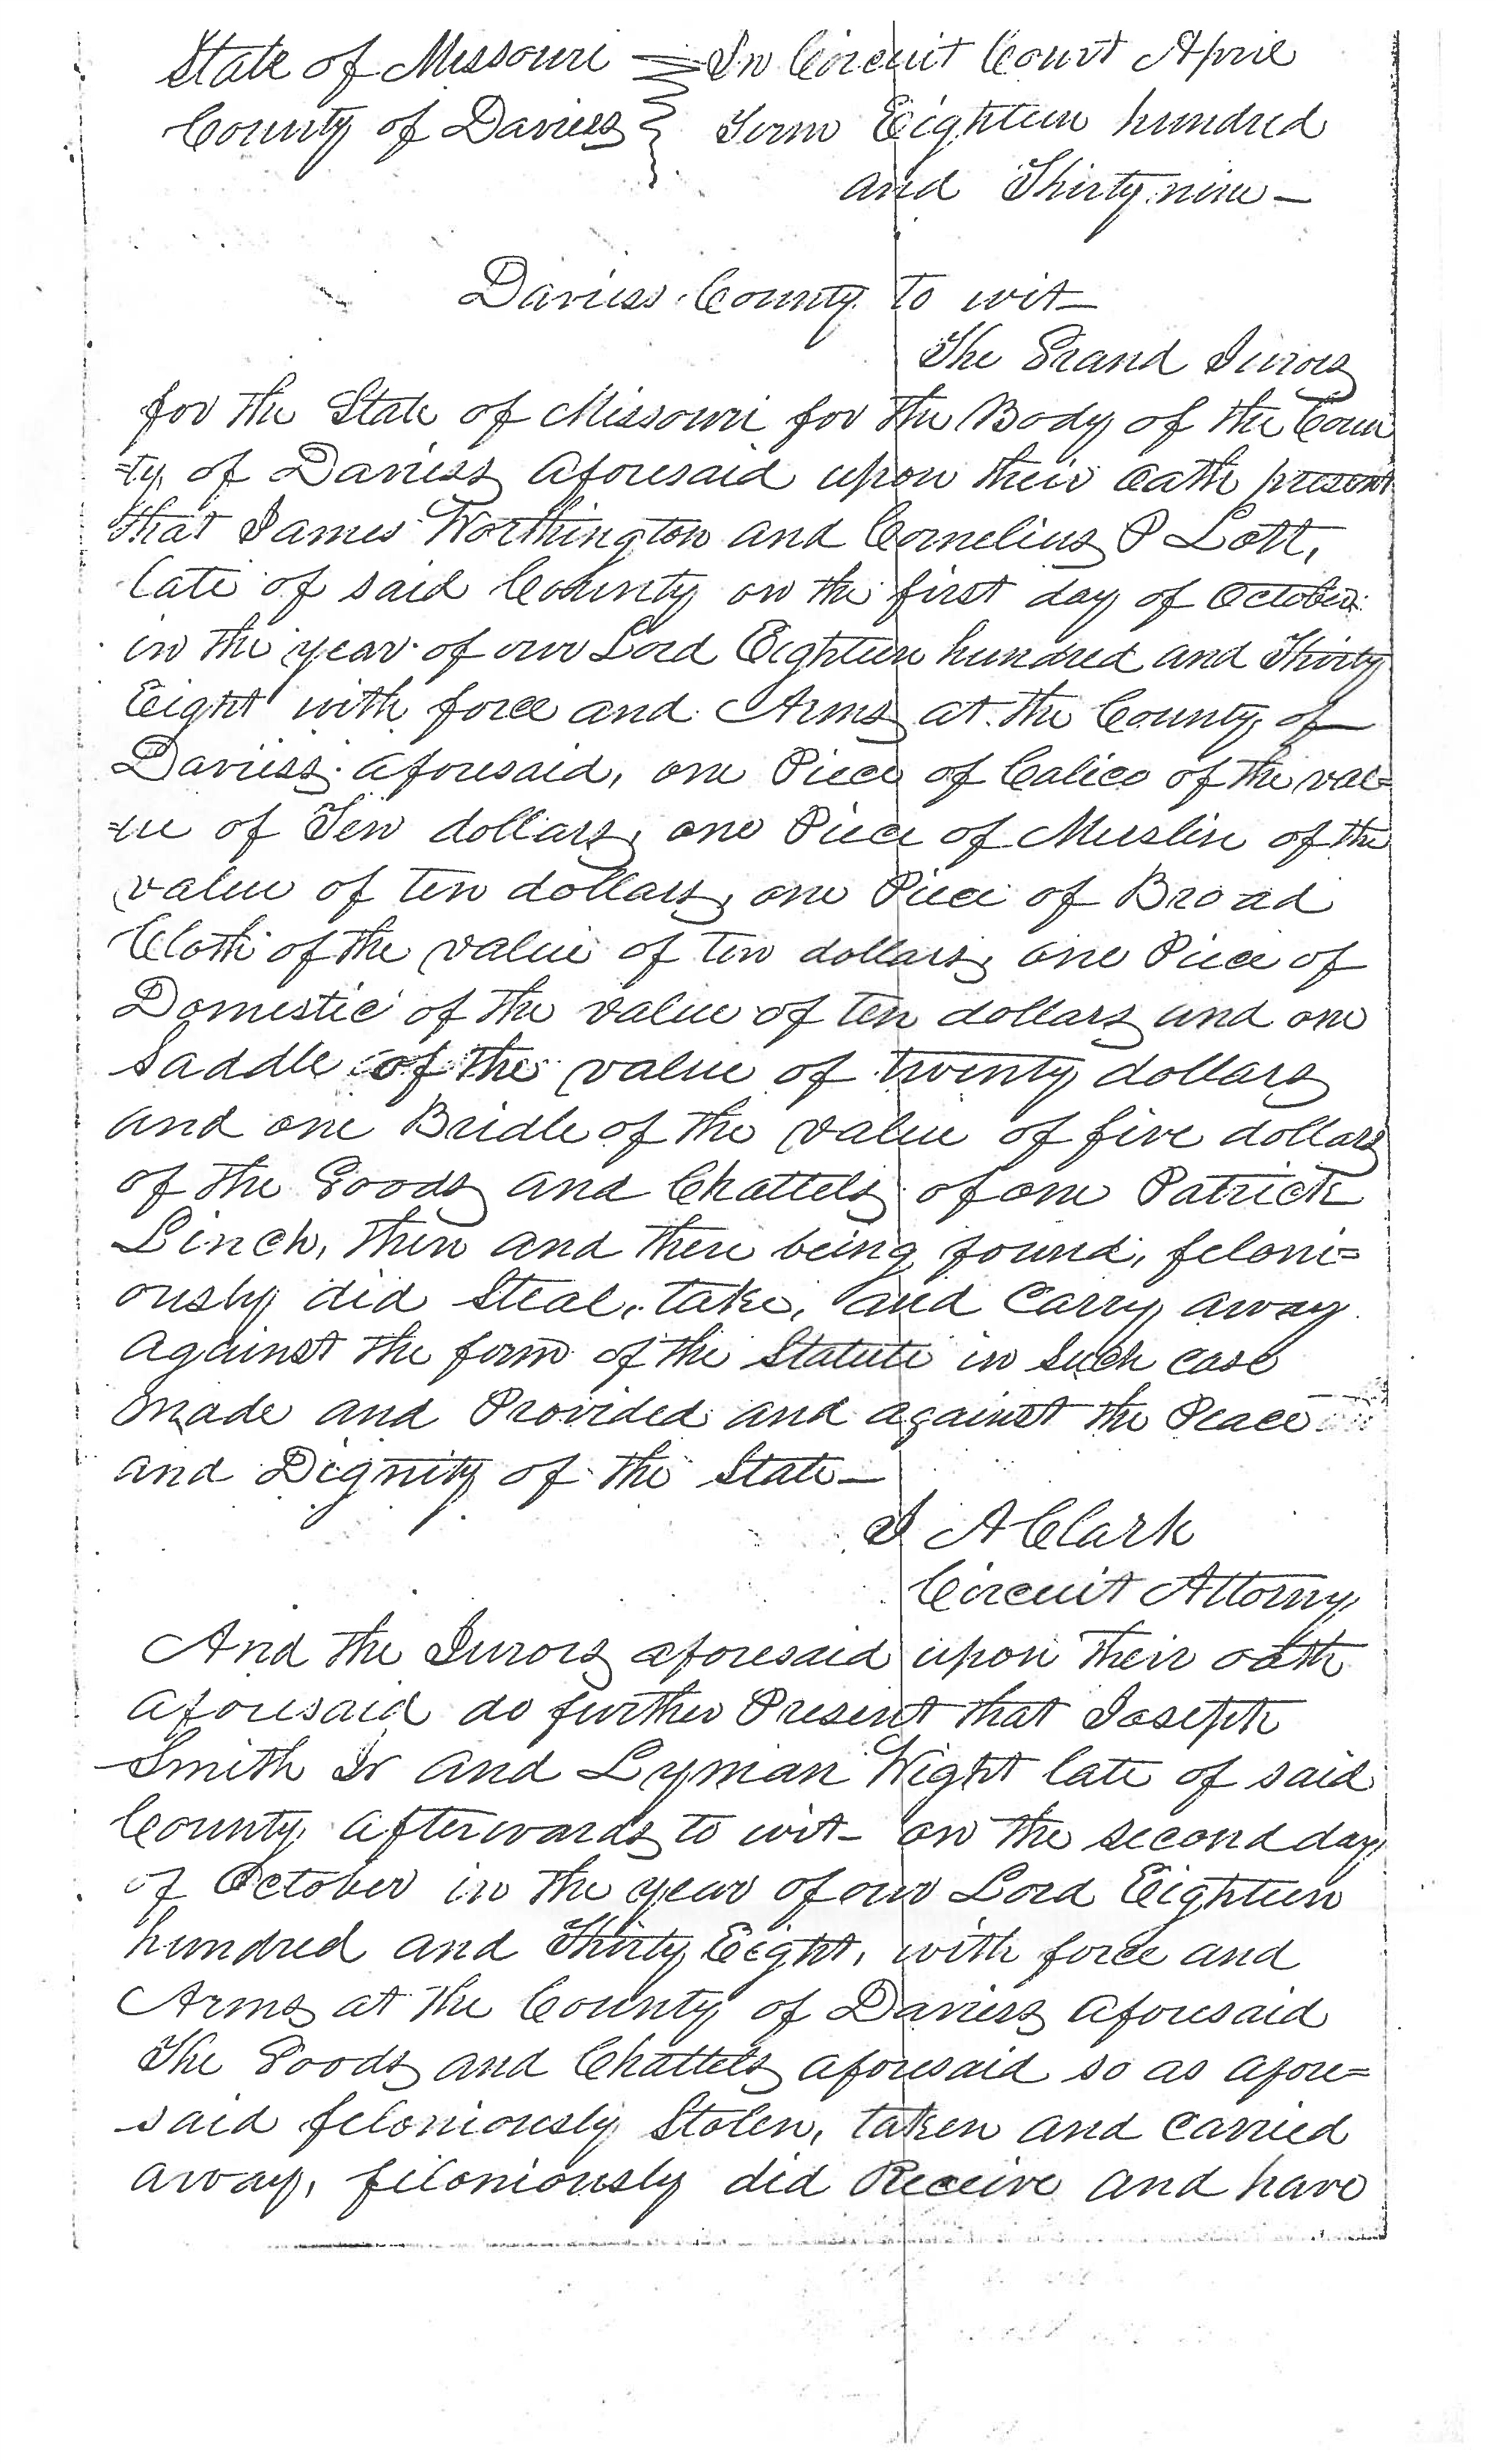 State of Missouri In Circuit Court April
County of Daviess Term Eighteen hundred
and Thirty nine —
Daviess County to wit —
The Grand Jurors
for the State of Missouri for the Body of the Coun
=ty of Daviess aforesaid upon their oath present
that James Worthington and Cornelius P Lott,
late of said County on the first day of October
in the year of our Lord Eighteen hundred and Thirty
Eight with force and Arms at the County of
Daviess aforesaid, one Piece of Calico of the val=
=ue of Ten dollars, one Piece of Muslin of the
value of ten dollars, one Piece of Broad
Cloth of the value of ten dollars, one Piece of
Domestic of the value of ten dollars and one
Saddle of the value of twenty dollars
and one Bridle of the value of five dollars
of the Goods and Chattels of one Patrick
Linch, then and there being found, feloni=
ously did Steal, take, and Carry away
against the form of the Statute in Such case
made and Provided and against the Peace
and Dignity of the State —
J A Clark
Circuit Attorny
And the Jurors aforesaid upon their oath
aforesaid do further Present that Joseph
Smith Jr and Lyman Wight late of said
County afterwards to wit — on the second day
of October in the year of our Lord Eighteen
hundred and Thirty Eight, with force and
Arms at the County of Daviess aforesaid
The Goods and Chattels aforesaid so as afore=
said feloniously Stolen, taken and carried
away, feloniously did Receive and have